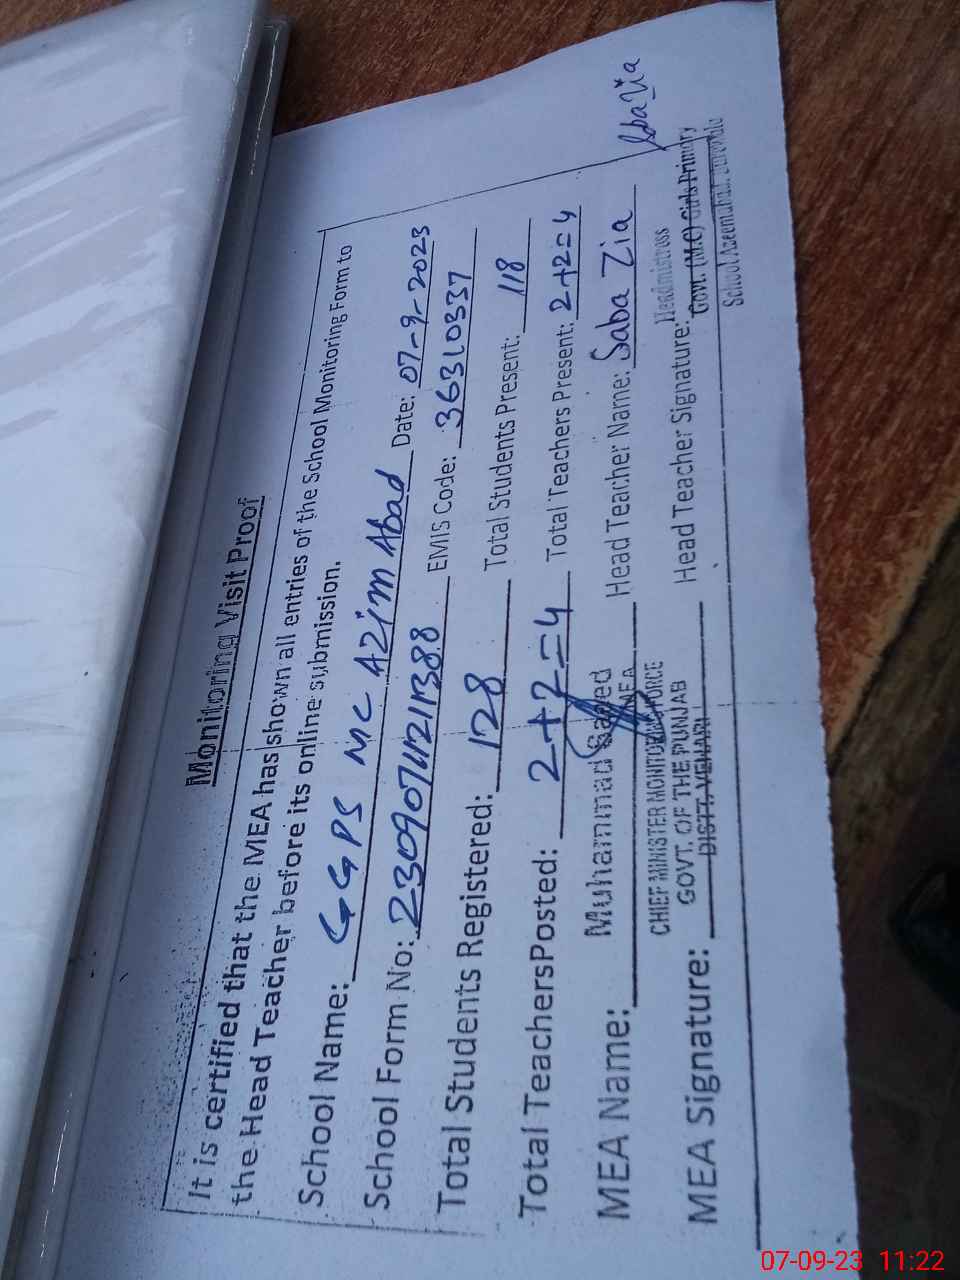 Monitoring Visit Proof
It is certified that the MEA has shown all entries of the School Monitoring Form to
the Head Teacher before its online submission.
School Name: GGPS MC Azim Abad Date: 07-9-2023
School Form No: EMIS Code: 36310337
Total Students Registered: 128 Total Students Present: 118
Total TeachersPosted: 2+2=4 Total Teachers Present: 2+2=4
MEA Name: Muhammad Saeed Head Teacher Name: Saba Zia
MEA
CHIEF MINISTER MONITORING FORCE
GOVT. OF THE PUNJAB
DISTT. VEHARI
MEA Signature: Head Teacher Signature: Saba Zia
Headmistress
Govt. (M.C) Girls Primary
School Azeemabad
07-09-23 11:22